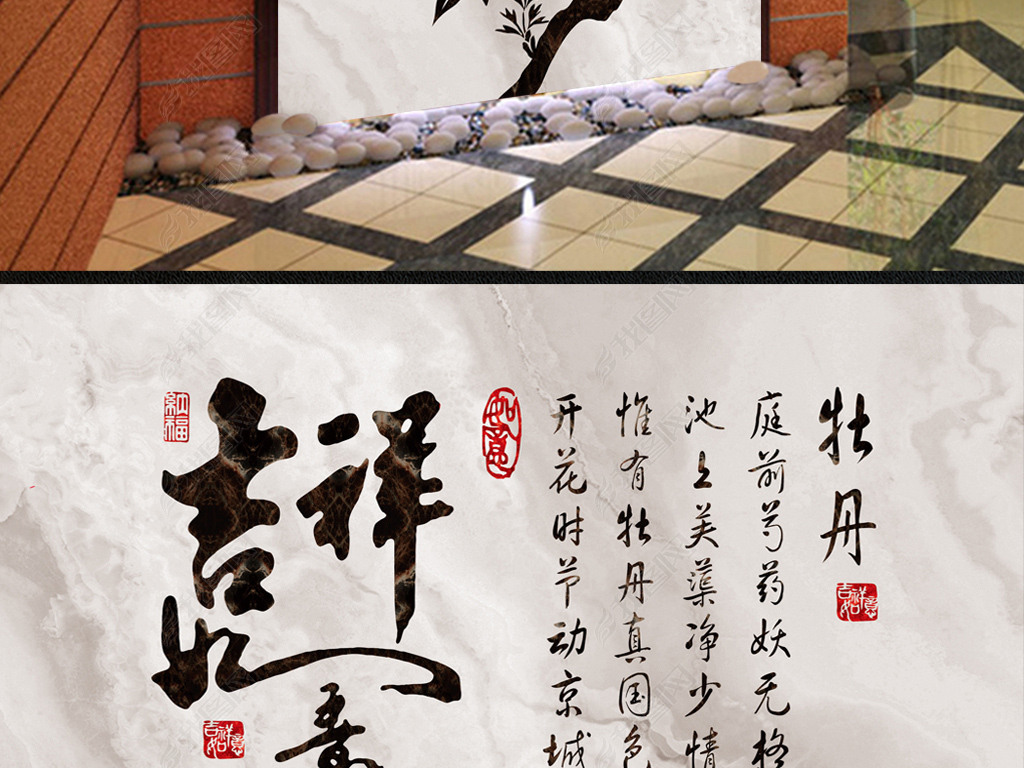 牡丹
庭前芍药妖无格
池上芙蕖净少情
惟有牡丹真国色
开花时节动京城
如意
吉祥如意
納福
吉祥如意
吉祥如意